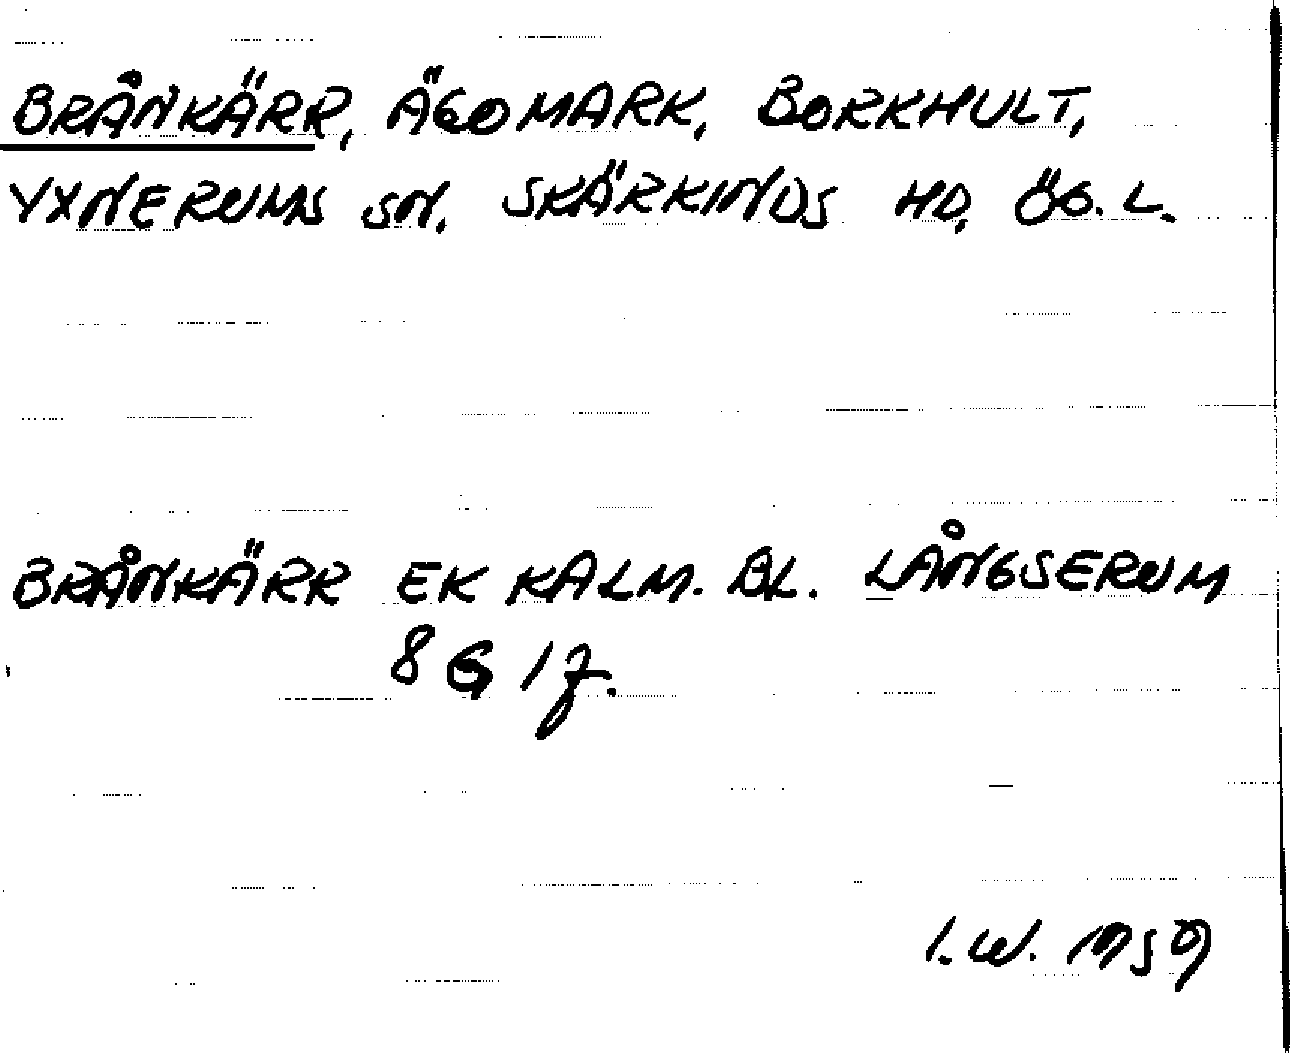 BRÅNKÄRR, ÄGOMARK, BORKHULT,
YXNERUMS SN. SKÄRKINDS HD, ÖG. L.
BRÅNKÄRR EK KALM. BL. LÅNGSERUM
8G 1f.
I.W. 1959